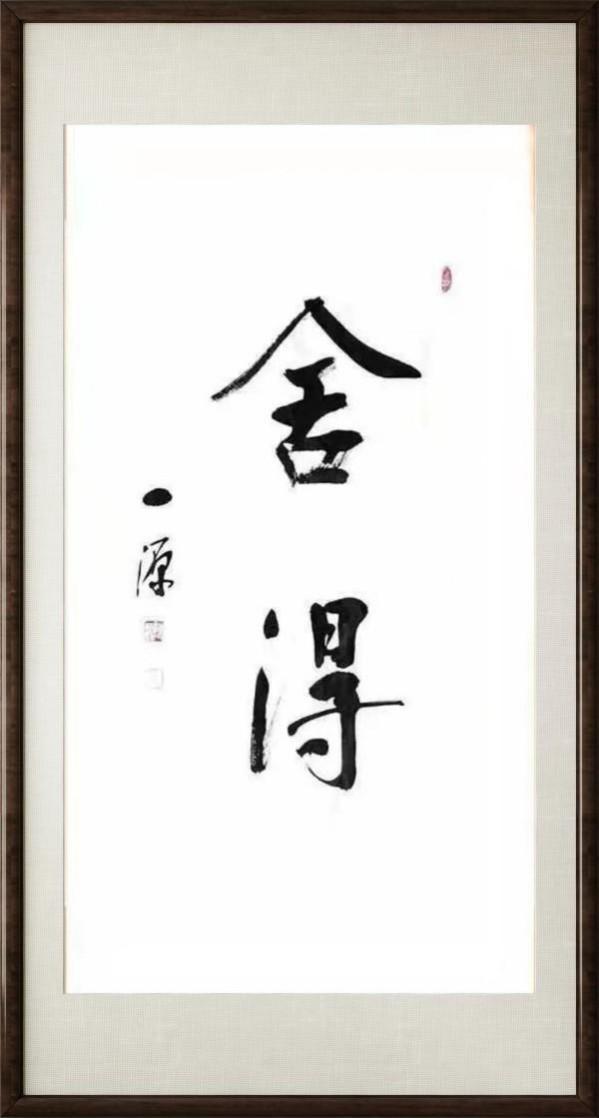 舍得
一源